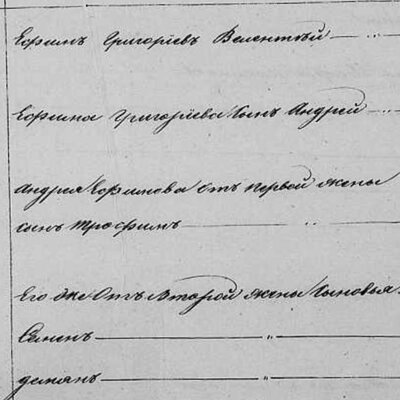 Ефимъ Григорьевъ Велентѣй — "
Ефима Григорьева Сынъ Андрей — "
Андрея Ефимова отъ первой жены
сынъ Трофимъ — "
Его же Отъ Второй жены Сыновья
Семенъ — "
Демянъ — "